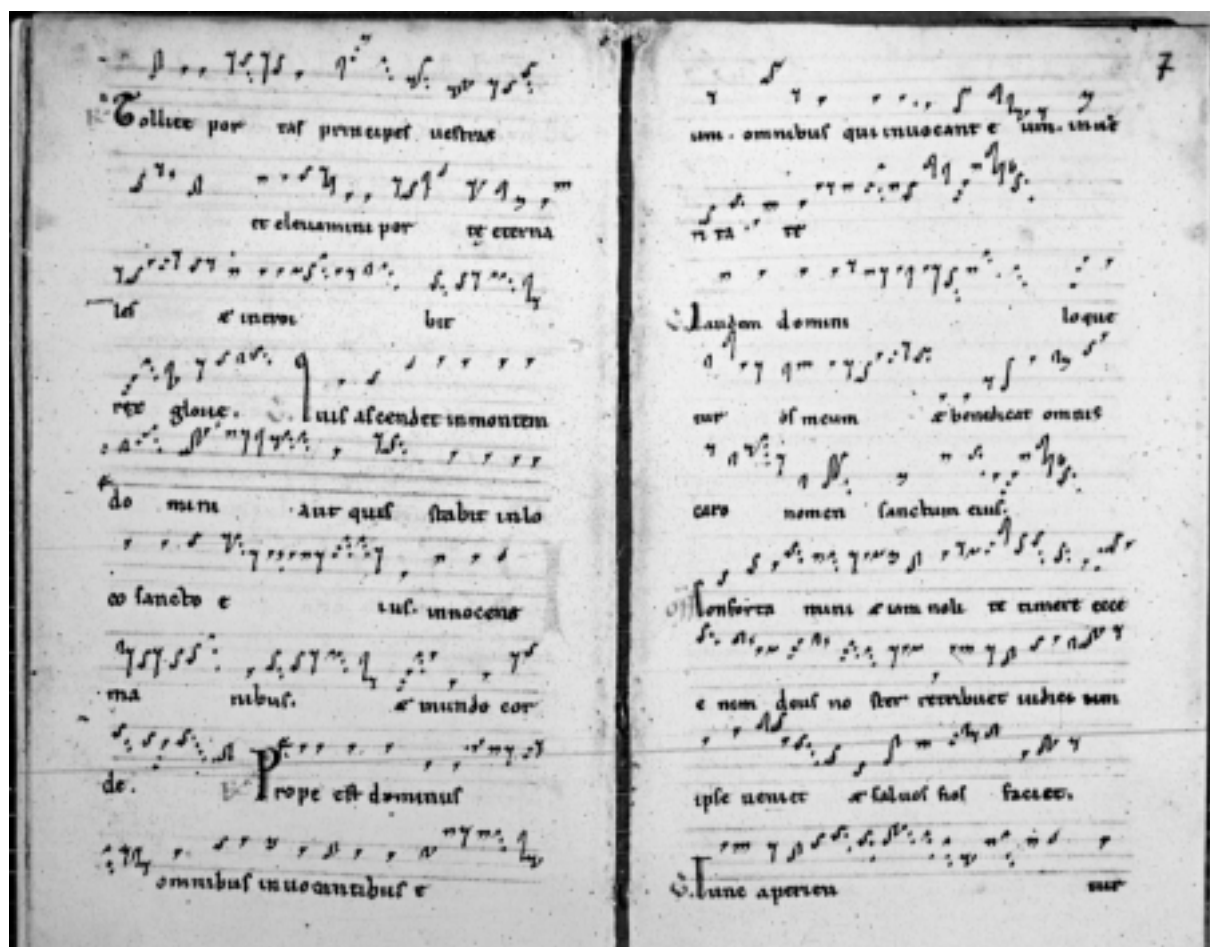 Tollite por tas principes uestras
et eleuamini por tę eterna
les & introi bit
rex glorie. Quis ascendet in montem
do mini aut quis stabit in lo
co sancto e ius. innocens
ma nibus. & mundo cor
de. Prope est dominus
omnibus inuocantibus e
7
um. omnibus qui inuocant e um. in ue
ri ta te
Laudem domini loque
tur os meum & benedicat omnis
caro nomen sanctum eius.
Conforta mini & iam noli te timere ecce
e nim deus no ster retribuet iudici um
ipse ueniet & saluos nos faciet.
Tunc aperien tur